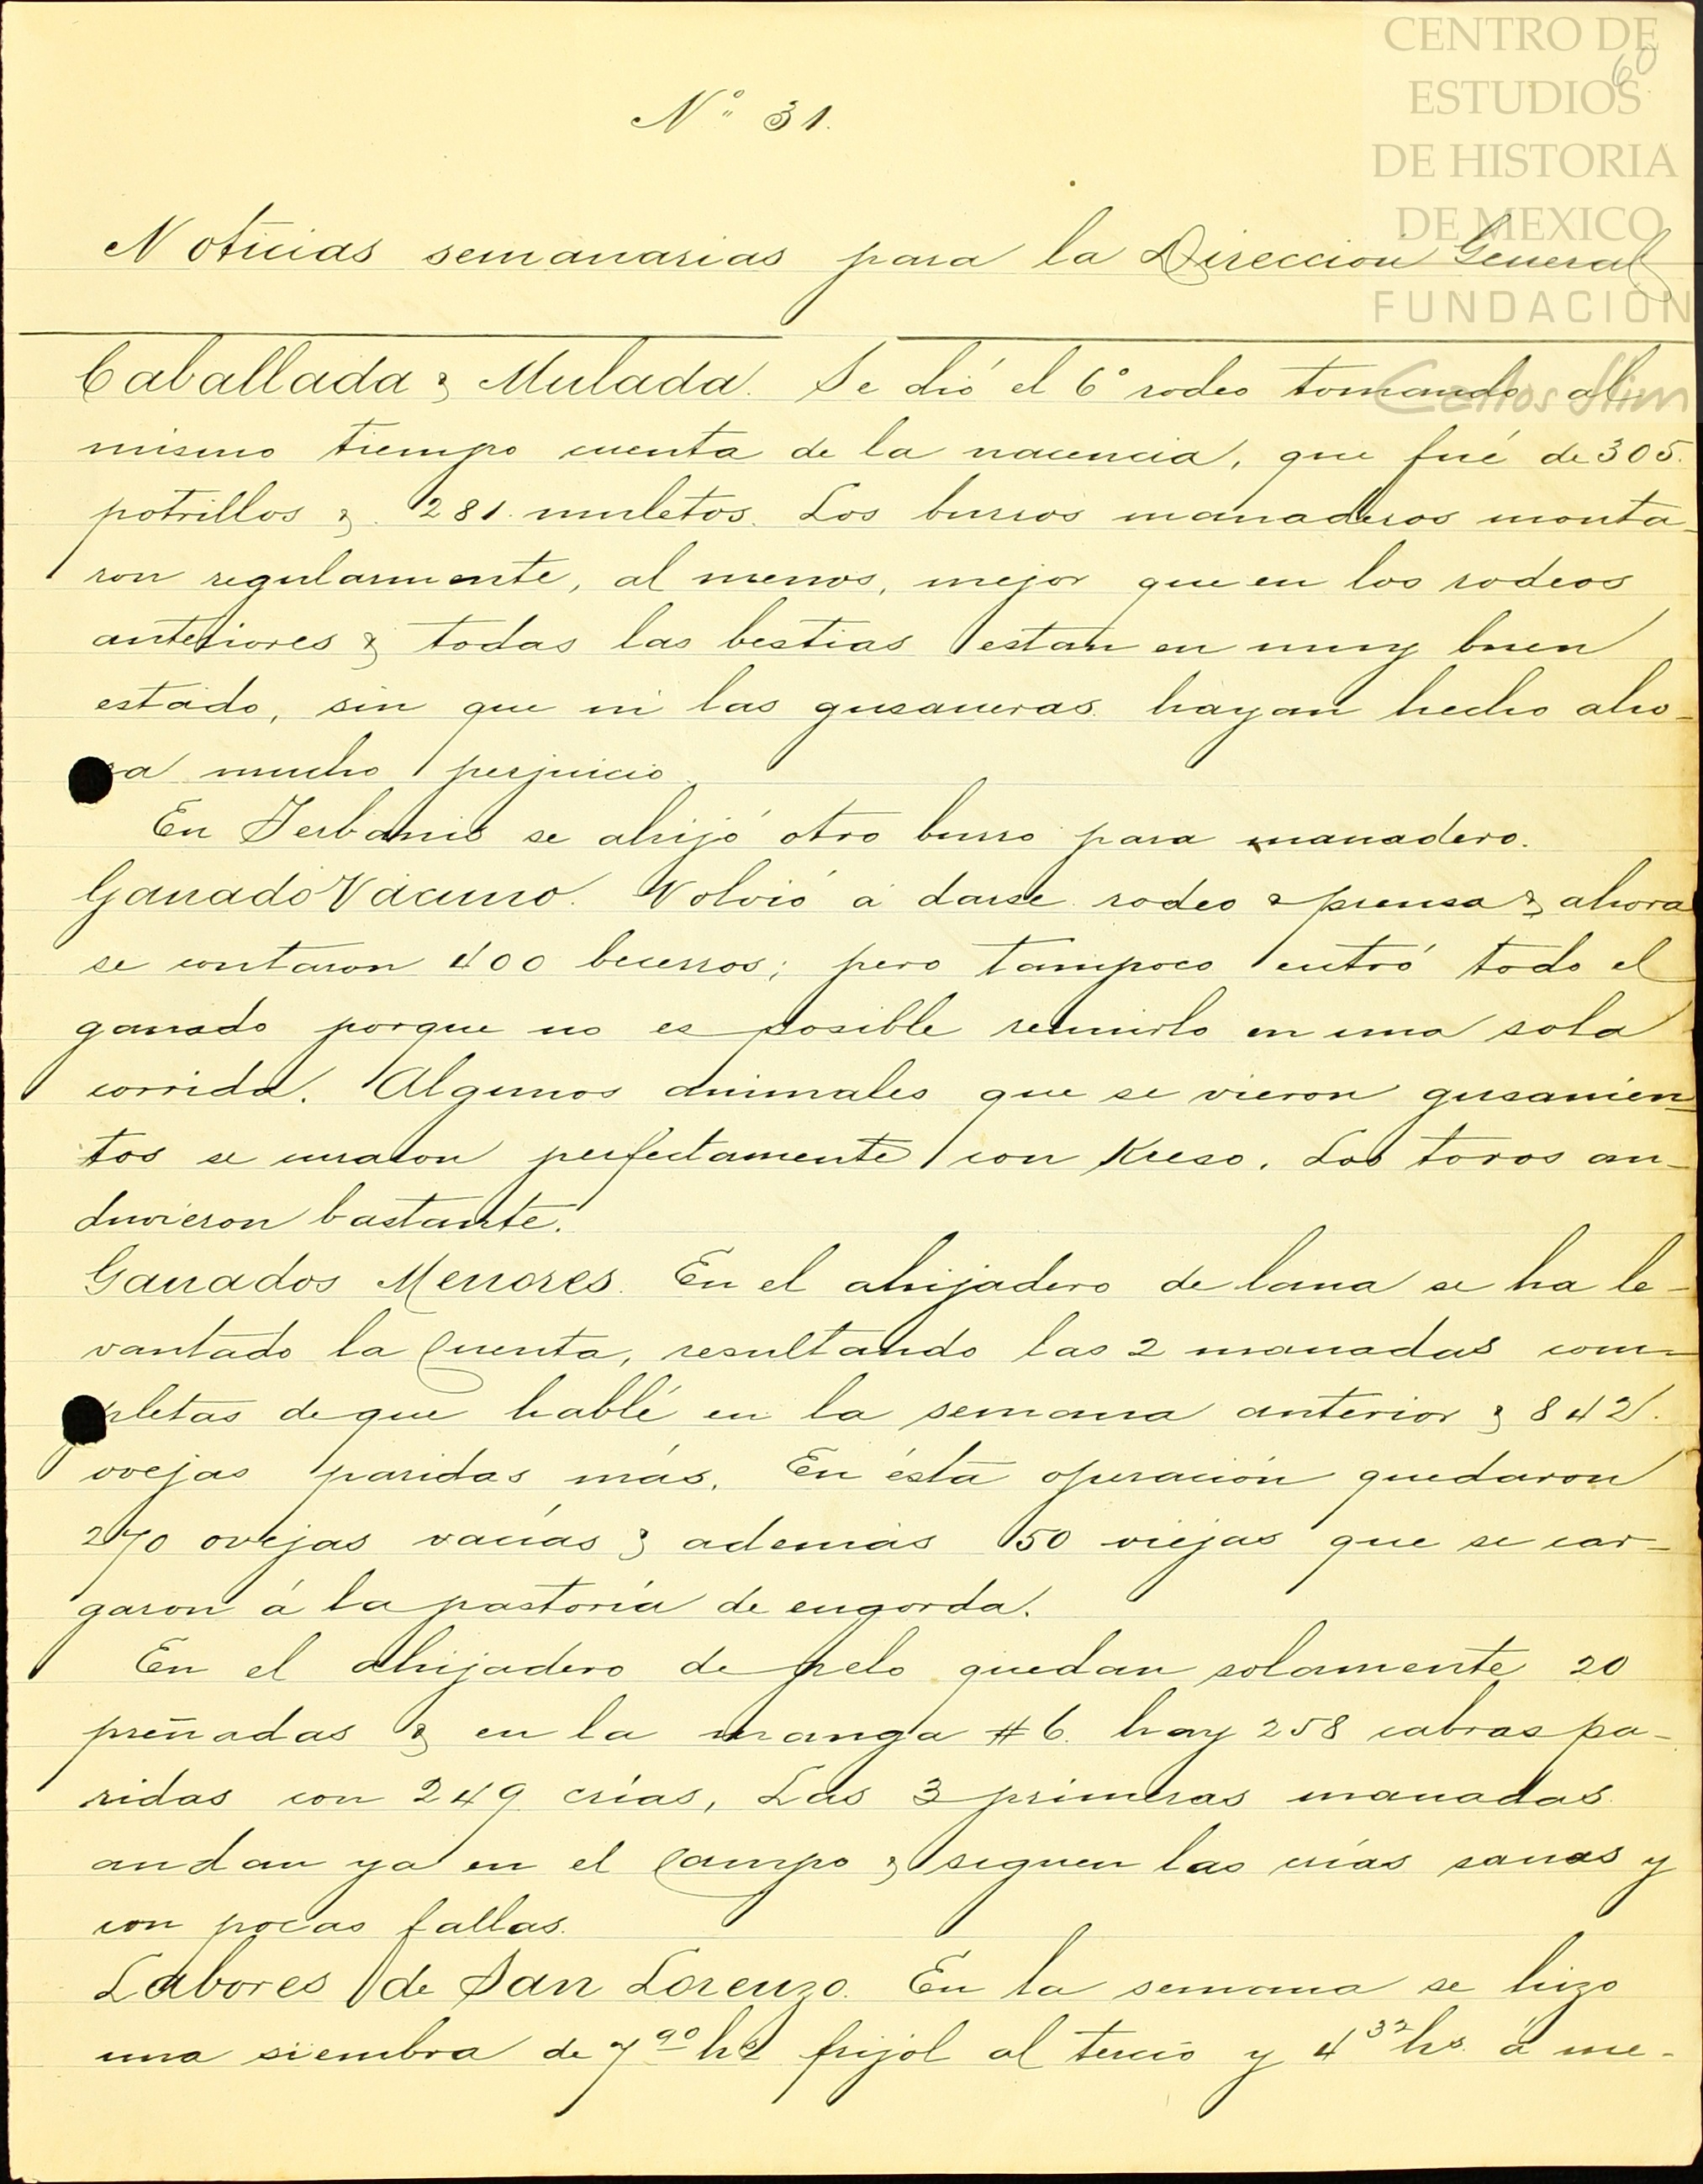 CENTRO DE
ESTUDIOS
DE HISTORIA
DE MEXICO
FUNDACIÓN
Carlos Slim
60
Nº 31.
Noticias semanarias para la Direccion General
Caballada & Mulada. Se dió el 6º rodeo tomando al
mismo tiempo cuenta de la nacencia, que fué de 305.
potrillos &. 281. muletos. Los burros manaderos monta-
ron regularmente, al menos, mejor que en los rodeos
anteriores & todas las bestias estan en muy buen
estado, sin que ni las gusaneras hayan hecho aho-
ra mucho perjuicio.
En se ahijó otro burro para manadero.
Ganado Vacuno. Volvió á darse rodeo & prensa & ahora
se contaron 400 becerros; pero tampoco entró todo el
ganado porque no es posible reunirlo en una sola
corrida. Algunos animales que se vieron gusanien-
tos se curaron perfectamente con Kreso. Los toros an-
duvieron bastante.
Ganados Menores. En el ahijadero de lana se ha le-
vantado la Cuenta, resultando las 2 manadas com-
pletas de que hablé en la semana anterior & 842.
ovejas paridas más. En ésta operación quedaron
270 ovejas vacías & además 50 viejas que se car-
garon á la pastoría de engorda.
En el ahijadero de pelo quedan solamente 20
preñadas & en la manga #6. hay 258 cabras pa-
ridas con 249 crías, Las 3 primeras manadas
andan ya en el Campo & siguen las crías sanas y
con pocas fallas.
Labores de San Lorenzo. En la semana se hizo
una siembra de 7 90 hs frijol al tercio y 4 32 hs. á me-